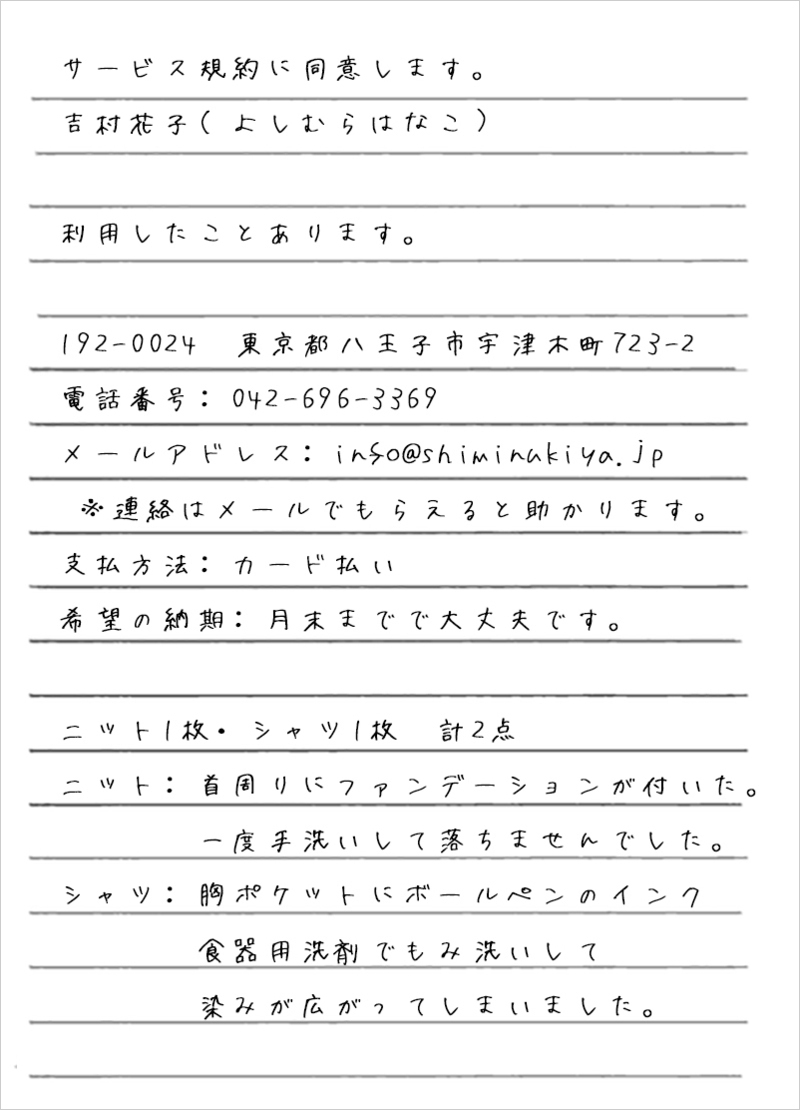 サービス規約に同意します。
吉村花子(よしむらはなこ)
利用したことあります。
192-0024　東京都八王子市宇津木町723-2
電話番号：042-696-3369
メールアドレス：info@shiminukiya.jp
※連絡はメールでもらえると助かります。
支払方法：カード払い
希望の納期：月末までで大丈夫です。
ニット1枚・シャツ1枚　計2点
ニット：首周りにファンデーションが付いた。
一度手洗いして落ちませんでした。
シャツ：胸ポケットにボールペンのインク
食器用洗剤でもみ洗いして
染みが広がってしまいました。